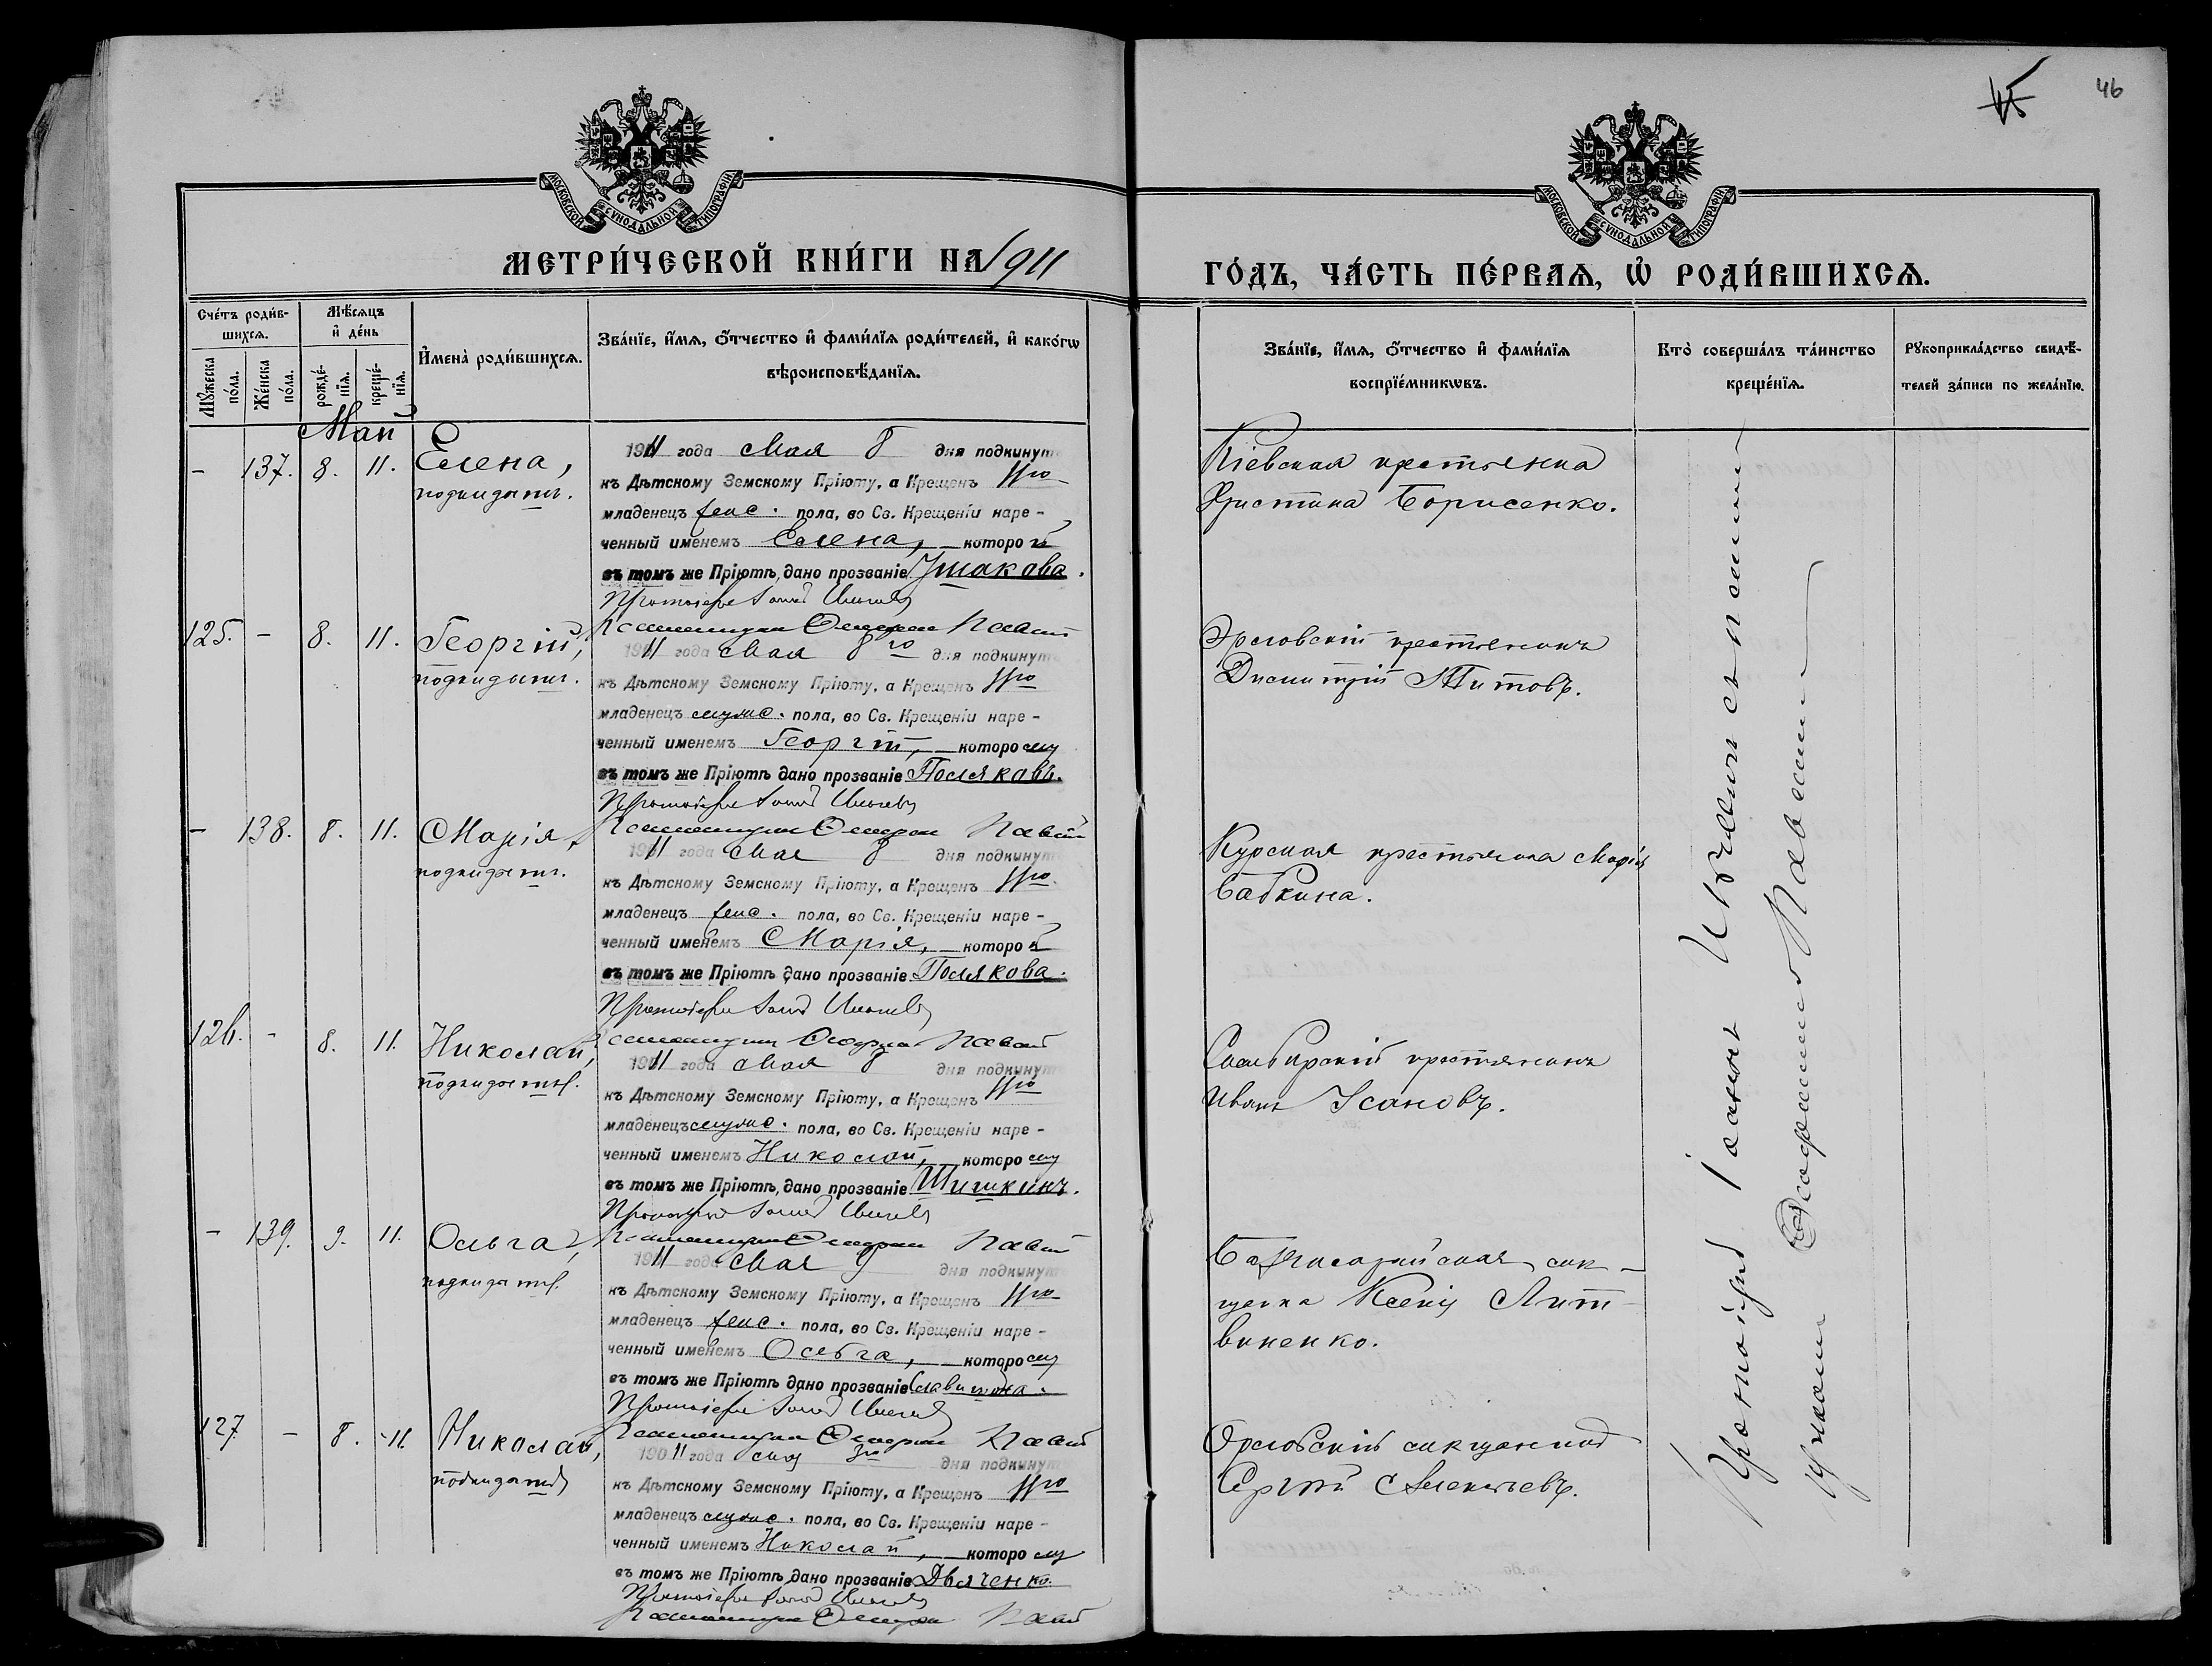 46
МОСКОВСКОЙ СѴНОДАЛЬНОЙ ТИПОГРАФІИ
МОСКОВСКОЙ СѴНОДАЛЬНОЙ ТИПОГРАФІИ
МЕТРИ́ЧЕСКОЙ КНИ́ГИ НА 1911
ГО́ДЪ, ЧА́СТЬ ПЕ́РВАѦ, Ѡ҆ РОДИ́ВШИХСѦ.
Сче́тъ роди́в-
шихсѧ.
Мѣ́сѧцъ
и҆ де́нь
Мꙋ́жеска по́ла.
Же́нска по́ла.
рожде́-
нїѧ.
креще́-
нїѧ.
И҆мена̀ роди́вшихсѧ.
Зва́нїе, и҆́мѧ, ѻ҆́тчество и҆ фами́лїѧ роди́телей, и҆ како́гѡ
вѣроисповѣ́данїѧ.
Зва́нїе, и҆́мѧ, ѻ҆́тчество и҆ фами́лїѧ
воспрїе́мникѡвъ.
Кто̀ соверша́лъ та́инство
креще́нїѧ.
Рꙋкоприкла́дство свидѣ́-
телей за́писи по жела́нїю.
Май
- 137. 8. 11. Елена,
подкидышъ.
1911 года Мая 8 дня подкинут
къ Дѣтскому Земскому Пріюту, а Крещенъ 11го
младенецъ женс. пола, во Св. Крещеніи наре-
ченный именемъ Елена, которой
въ томъ же Пріютѣ, дано прозваніе Ушакова.
Кіевская крестьянка
Христина Борисенко.
125. - 8. 11. Георгій,
подкидышъ.
1911 года Мая 8го дня подкинут
къ Дѣтскому Земскому Пріюту, а Крещенъ 11го
младенецъ мужс. пола, во Св. Крещеніи наре-
ченный именемъ Георгій, которому
въ томъ же Пріютѣ дано прозваніе Поляковъ.
Орловскій крестьянинъ
Димитрій Титовъ.
- 138. 8. 11. Марія,
подкидышъ.
1911 года Мая 8 дня подкинут
къ Дѣтскому Земскому Пріюту, а Крещенъ 11го
младенецъ женс. пола, во Св. Крещеніи наре-
ченный именемъ Марія, которой
въ томъ же Пріютѣ дано прозваніе Полякова.
Курская крестьянка Марія
Бабкина.
126. - 8. 11. Николай,
подкидышъ.
1911 года Мая 8 дня подкинут
къ Дѣтскому Земскому Пріюту, а Крещенъ 11го
младенецъ мужс. пола, во Св. Крещеніи наре-
ченный именемъ Николай, которому
въ томъ же Пріютѣ, дано прозваніе Шишкинъ.
Симбирскій крестьянинъ
Иванъ Усановъ.
- 139. 9. 11. Ольга,
подкидышъ.
1911 года Мая 9 дня подкинут
къ Дѣтскому Земскому Пріюту, а Крещенъ 11го
младенецъ женс. пола, во Св. Крещеніи наре-
ченный именемъ Ольга, которому
въ томъ же Пріютѣ дано прозваніе
Бахчисарайская мѣ-
щанка Ксенія Лит-
виненко.
127 - 8. 11. Николай,
подкидышъ
1911 года дня подкинут
къ Дѣтскому Земскому Пріюту, а Крещенъ 11го
младенецъ мужс. пола, во Св. Крещеніи наре-
ченный именемъ Николай, которому
въ томъ же Пріютѣ дано прозваніе Дьяченко.
Орловскій мѣщанинъ
Сергѣй
Протоіерей Іоаннъ съ псаломщи-
комъ